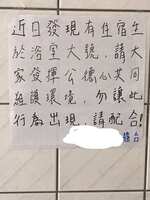 近日發現有住宿生
於浴室大號，請大
家發揮公德心共同
維護環境，勿讓此
行為出現，請配合！